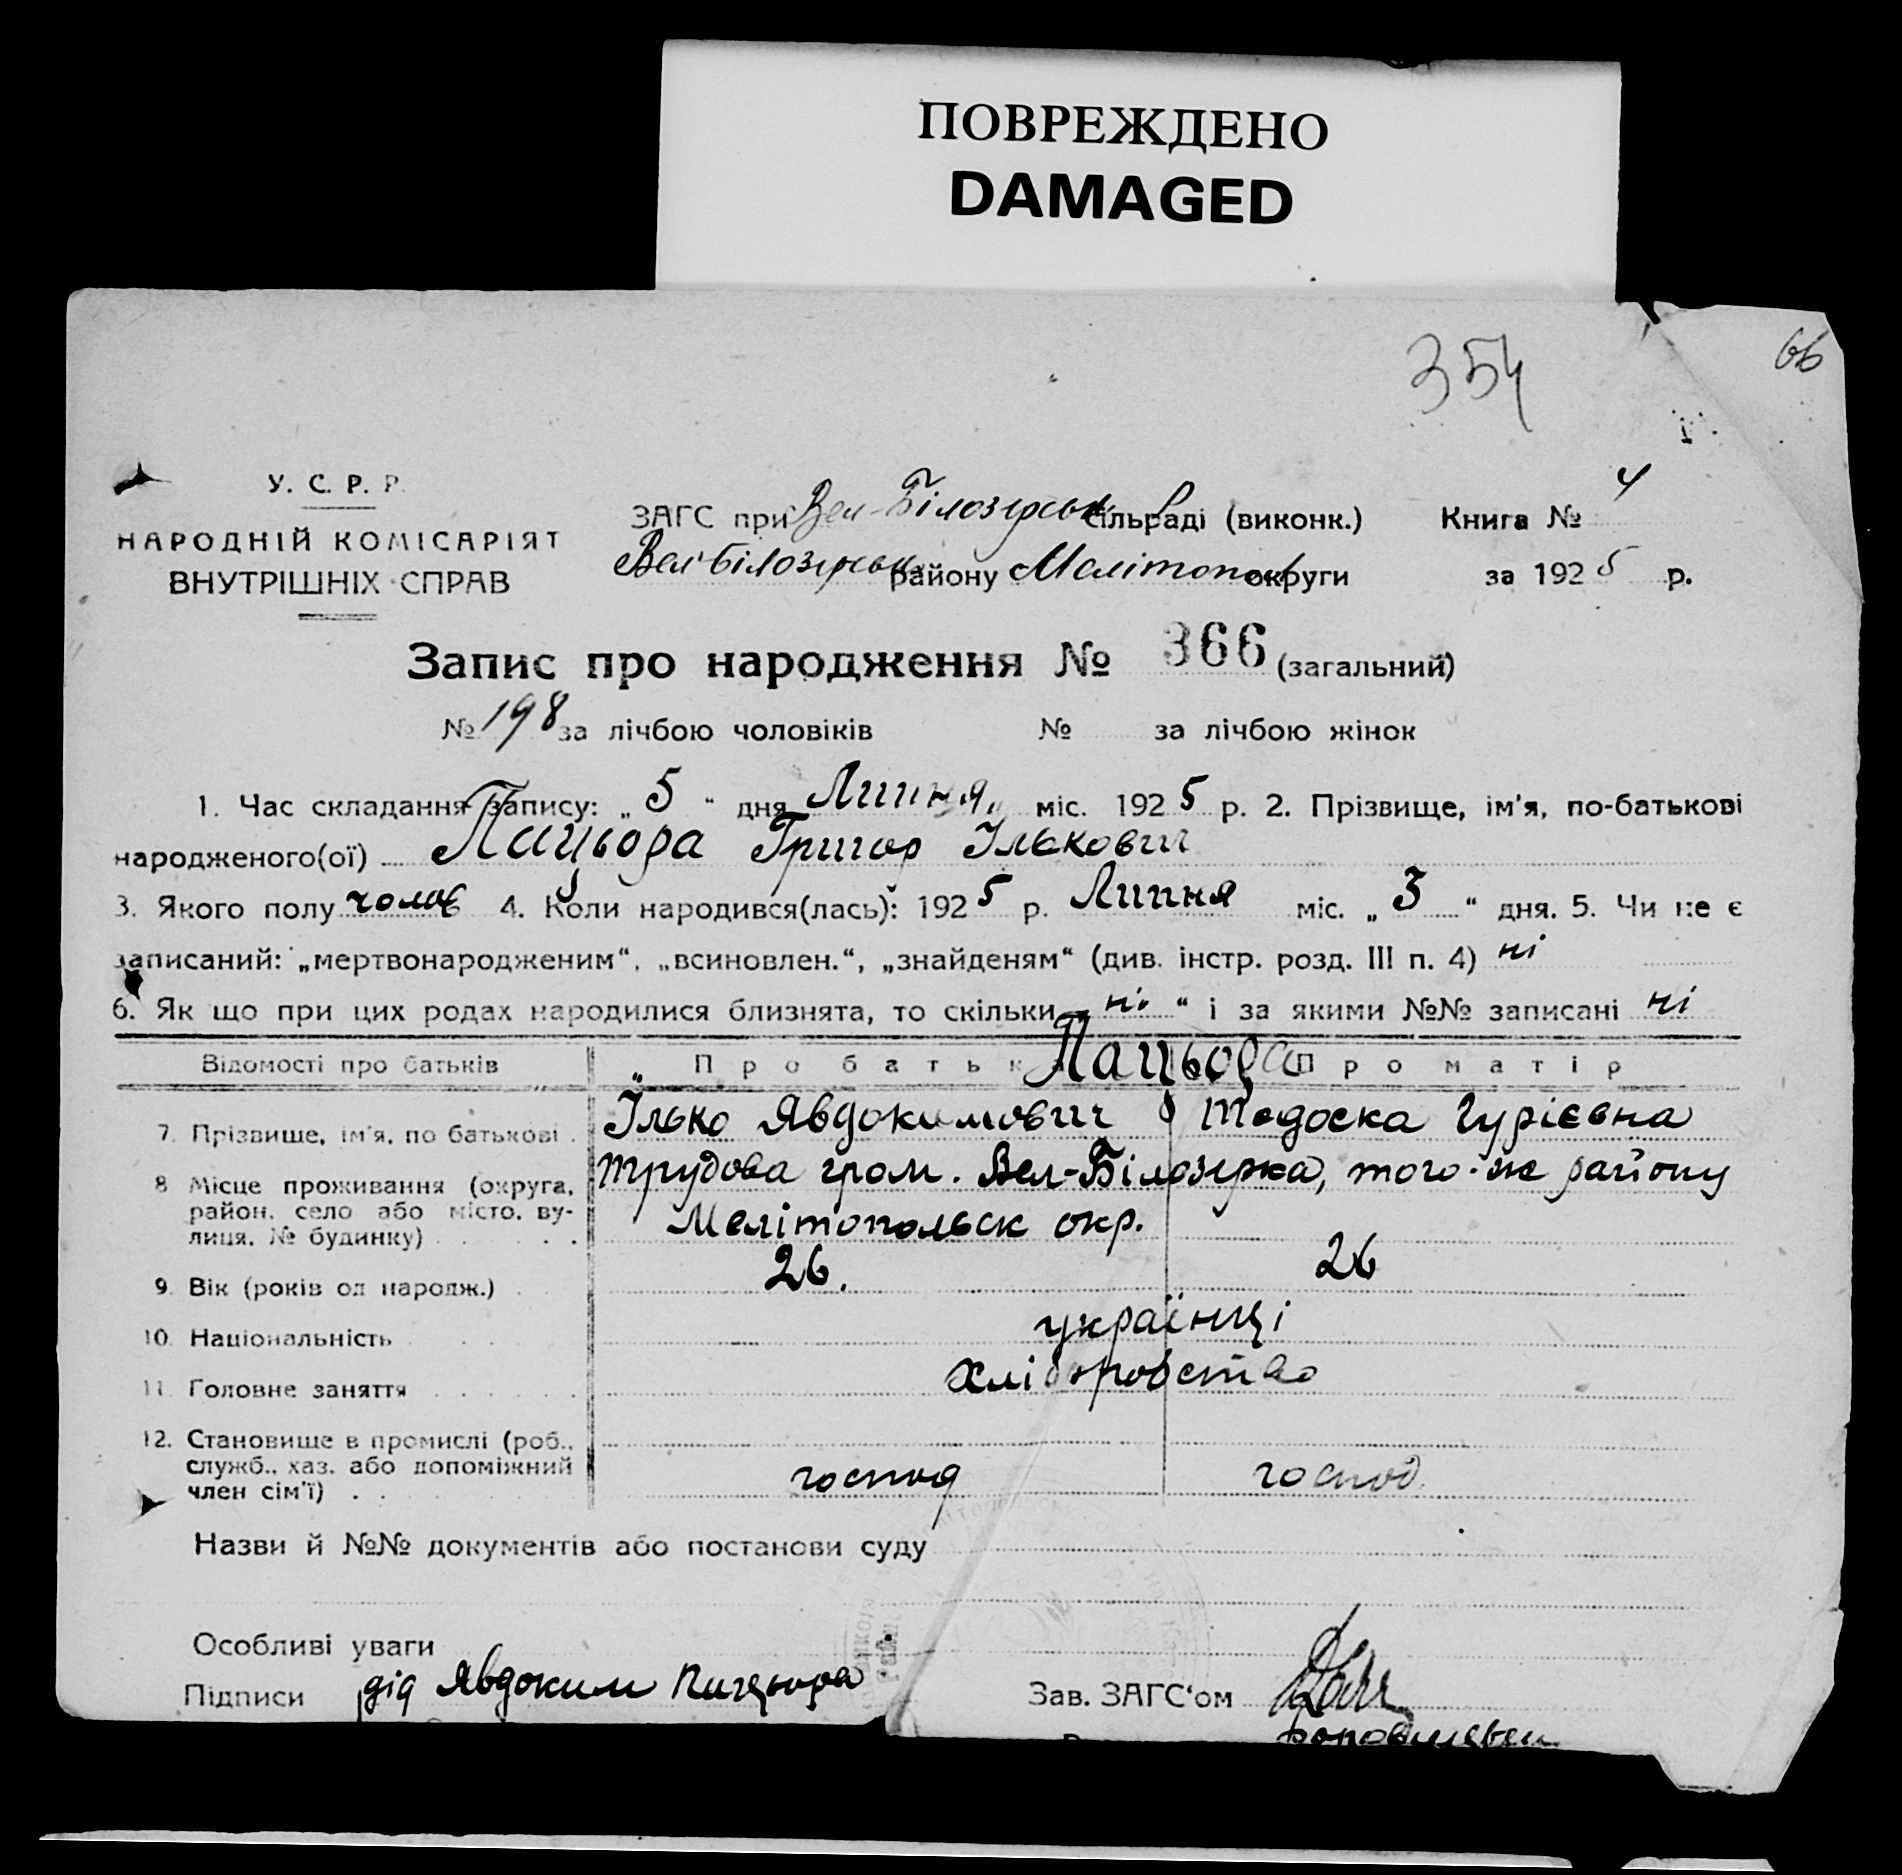 ПОВРЕЖДЕНО
DAMAGED
354
66
У. С. Р. Р.
НАРОДНІЙ КОМІСАРІЯТ
ВНУТРІШНІХ СПРАВ
ЗАГС при Вел-Білозирськ сільраді (виконк.) Книга № 4
Вел Білозирськ району Мелітопол округи за 1925 р.
Запис про народження № 366 (загальний)
№ 198 за лічбою чоловіків № за лічбою жінок
1. Час складання запису: „5“ дня Липня міс. 1925 р. 2. Прізвище, ім'я, по-батькові
народженого(ої) Пацьора Григор Ількович
3. Якого полу чолов 4. Коли народився(лась): 1925 р. Липня міс. „3“ дня. 5. Чи не є
записаний: „мертвонародженим“, „всиновлен.“, „знайденям“ (див. інстр. розд. III п. 4) ні
6. Як що при цих родах народилися близнята, то скільки „ні“ і за якими №№ записані ні
Відомості про батьків Про батьк Пацьора Про матір
7. Прізвище, ім'я, по батькові . Ілько Явдокимович Тедоска Гурієвна
8 Місце проживання (округа, район, село або місто, вулиця, № будинку) . . . трудова гром. Вел-Білозирка, того-же району
Мелітопольск окр.
9. Вік (років од народж.) . 26. 26
10. Національність українці
11. Головне заняття . . . . . хліборобство
12. Становище в промислі (роб.,
служб., хаз. або допоміжний
член сім'ї) . . господ господ.
Назви й №№ документів або постанови суду
Особливі уваги
Підписи дід Явдоким Пацьора Зав. ЗАГС'ом